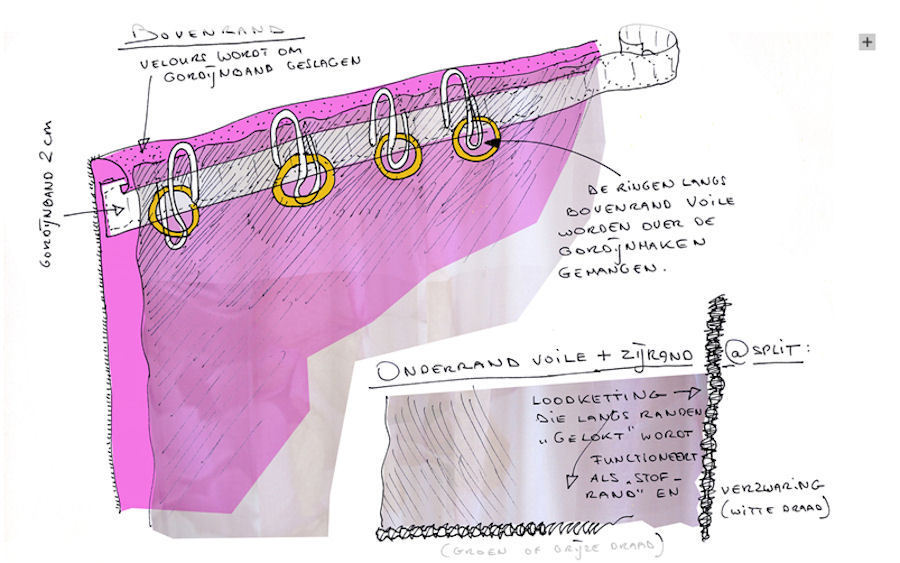 BOVENRAND
VELOURS WORDT OM
GORDIJNBAND GESLAGEN
GORDIJNBAND 2 cm
DE RINGEN LANGS
BOVENRAND VOILE
WORDEN OVER DE
GORDIJNHAKEN
GEHANGEN.
ONDERRAND VOILE + ZIJRAND @ SPLIT:
LOODKETTING
DIE LANGS RANDEN
„GELOKT" WORDT
FUNCTIONEERT
ALS „STOF-
RAND" EN
VERZWARING
(WITTE DRAAD)
(GROEN OF GRIJZE DRAAD)